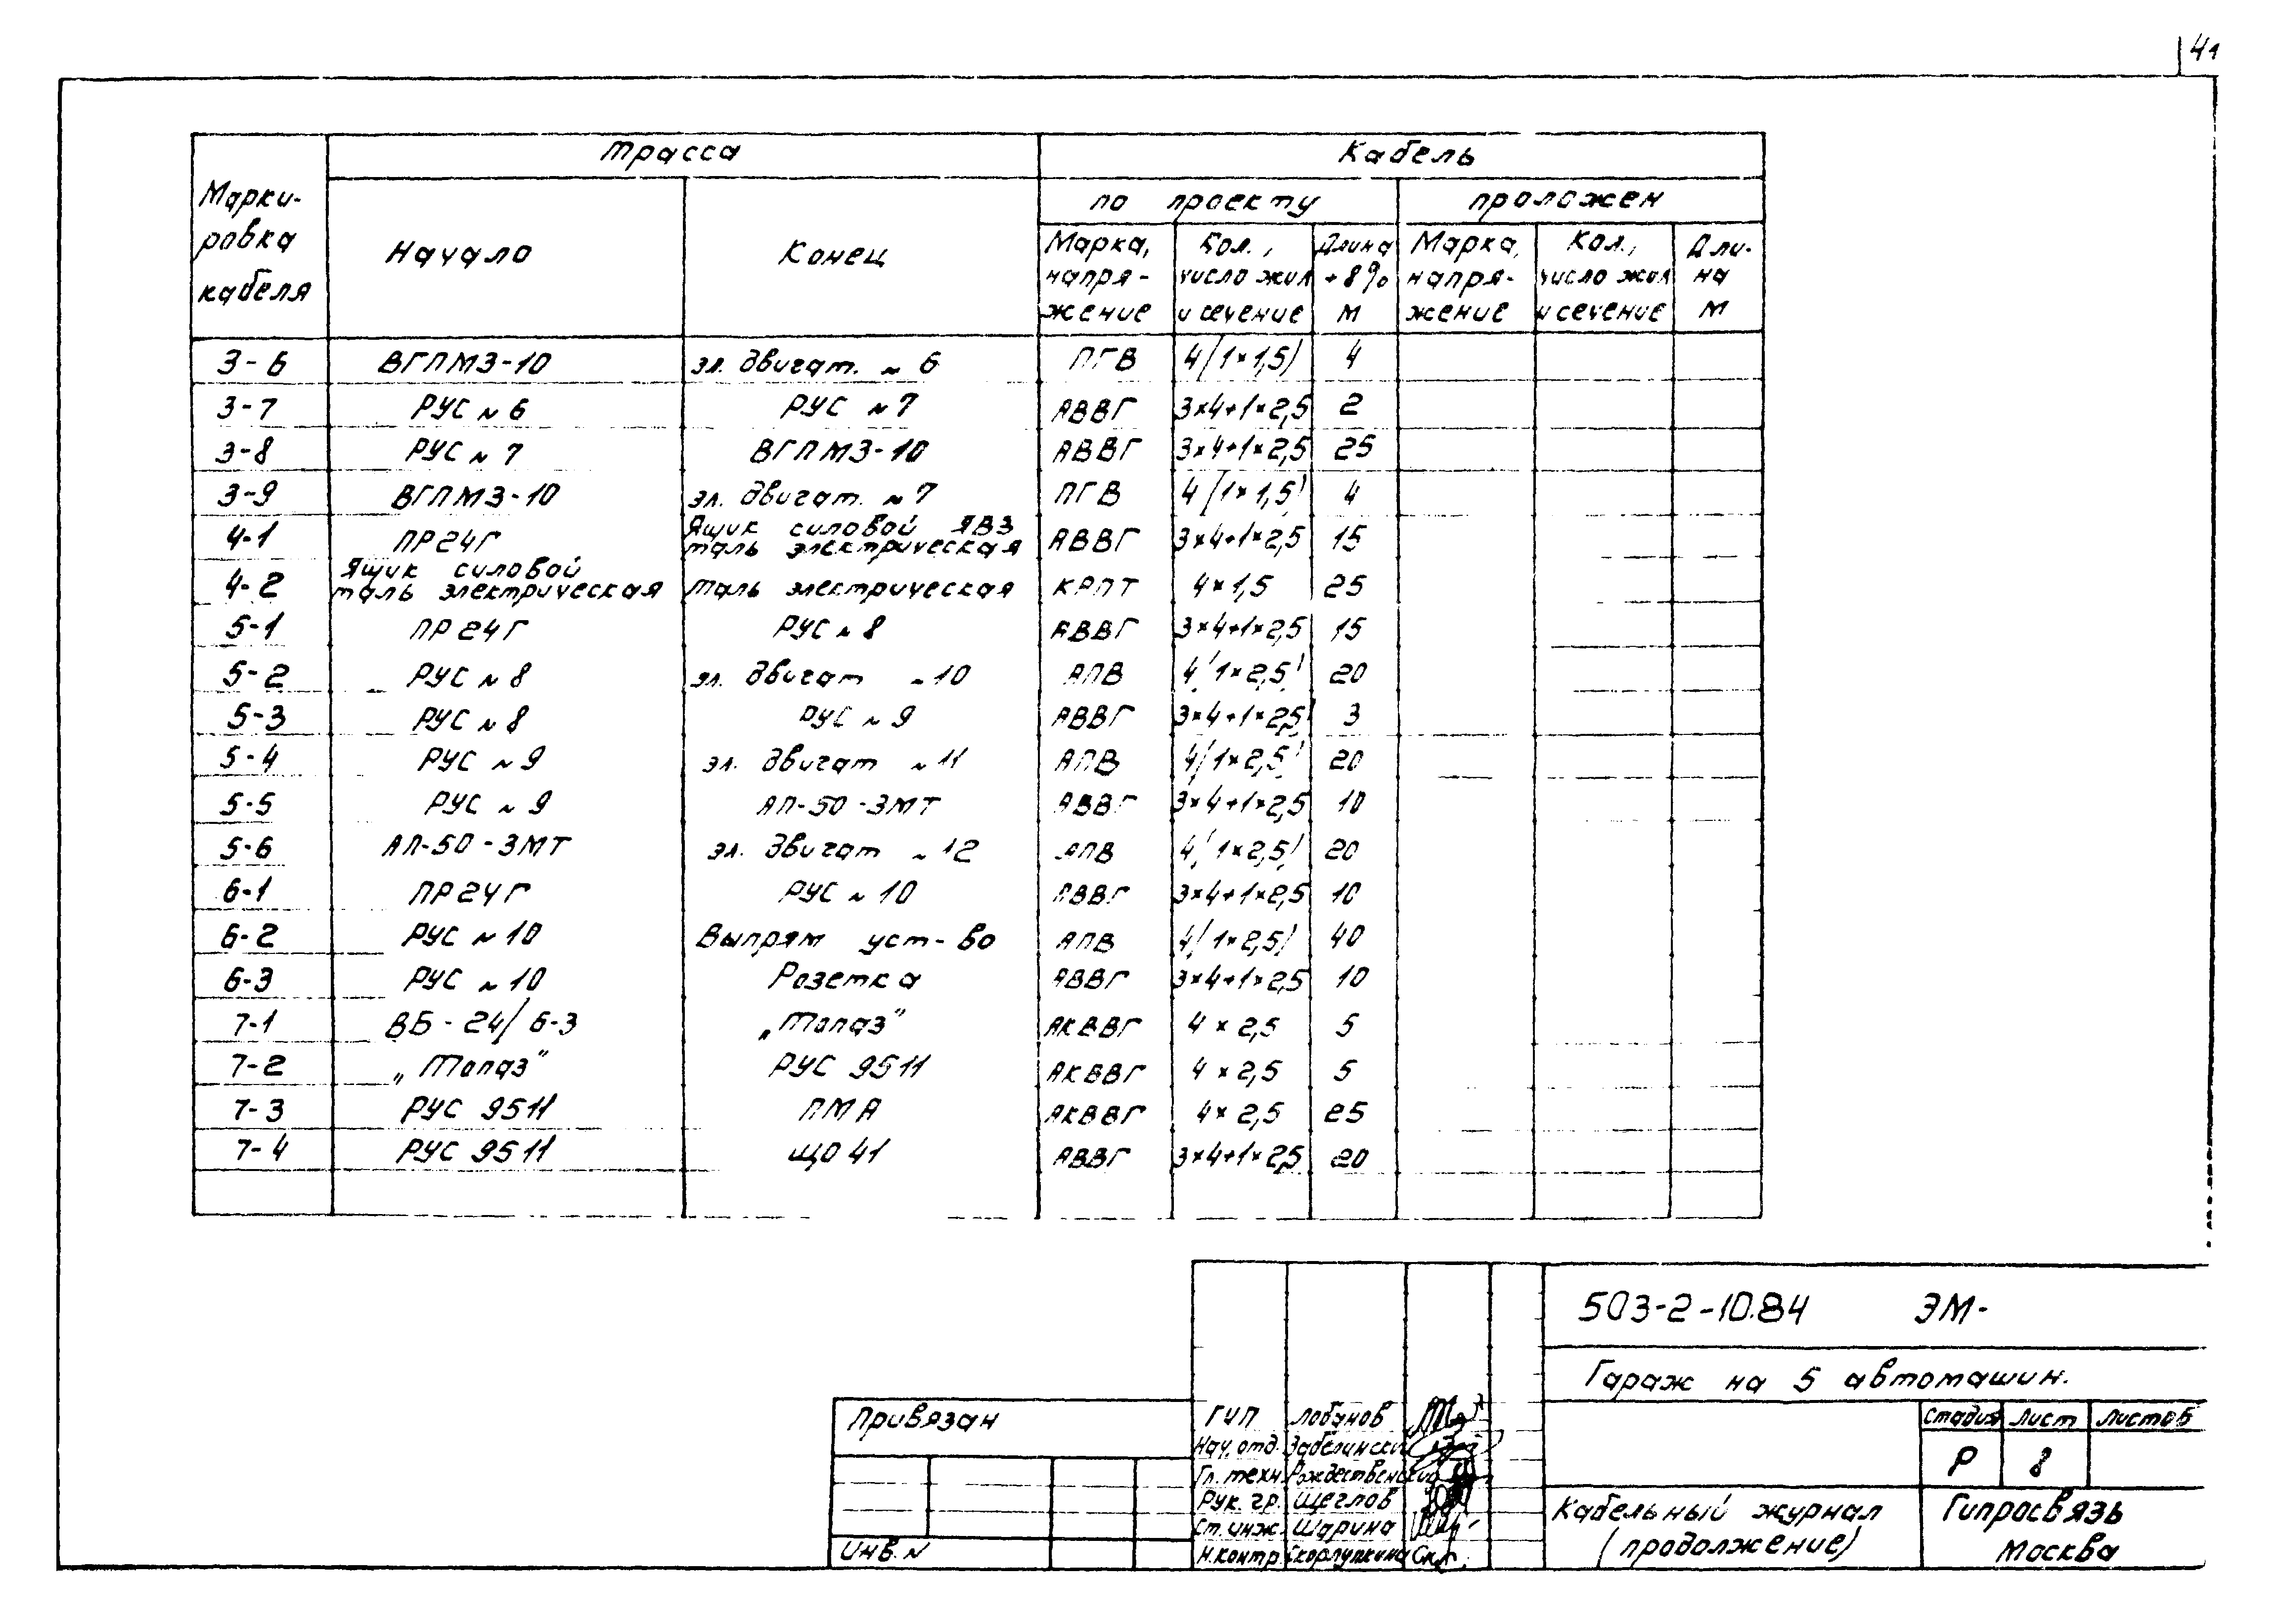 41
Марки-
ровка
кабеля
трасса
Кабель
Начало
Конец
по проекту
проложен
Марка,
напря-
жение
Кол.,
число жил
и сечение
Длина
+8%
м
Марка,
напря-
жение
Кол.,
число жил
и сечение
Дли-
на
м
3-6 ВГПМЗ-10 эл. двигат. № 6 ПГВ 4(1×1,5) 4
3-7 РУС № 6 РУС № 7 АВВГ 3×4+1×2,5 2
3-8 РУС № 7 ВГПМЗ-10 АВВГ 3×4+1×2,5 25
3-9 ВГПМЗ-10 эл. двигат. № 7 ПГВ 4(1×1,5) 4
4-1 ПР24Г Ящик силовой ЯВЗ таль электрическая АВВГ 3×4+1×2,5 15
4-2 Ящик силовой таль электрическая таль электрическая КРПТ 4×1,5 25
5-1 ПР24Г РУС № 8 АВВГ 3×4+1×2,5 15
5-2 РУС № 8 эл. двигат № 10 АПВ 4(1×2,5) 20
5-3 РУС № 8 РУС № 9 АВВГ 3×4+1×2,5 3
5-4 РУС № 9 эл. двигат № 11 АПВ 4(1×2,5) 20
5-5 РУС № 9 АП-50-3МТ АВВГ 3×4+1×2,5 10
5-6 АП-50-3МТ эл. двигат № 12 АПВ 4(1×2,5) 20
6-1 ПР24Г РУС № 10 АВВГ 3×4+1×2,5 10
6-2 РУС № 10 Выпрям уст-во АПВ 4(1×2,5) 40
6-3 РУС № 10 Розетка АВВГ 3×4+1×2,5 10
7-1 ВБ-24/6-3 „Топаз" АКВВГ 4×2,5 5
7-2 „Топаз" РУС 9511 АКВВГ 4×2,5 5
7-3 РУС 9511 ПМА АКВВГ 4×2,5 25
7-4 РУС 9511 ЩО41 АВВГ 3×4+1×2,5 20
503-2-10.84 ЭМ-
Гараж на 5 автомашин.
Привязан
Инв. N
ГИП Лобанов
Нач. отд. Забелински
Гл. техн. Рождественский
Рук. гр. Щеглов
Ст. инж. Шарина
Н. контр. Скорлупкина
Стадия Лист Листов
Р 8
Кабельный журнал
(продолжение)
Гипросвязь
Москва